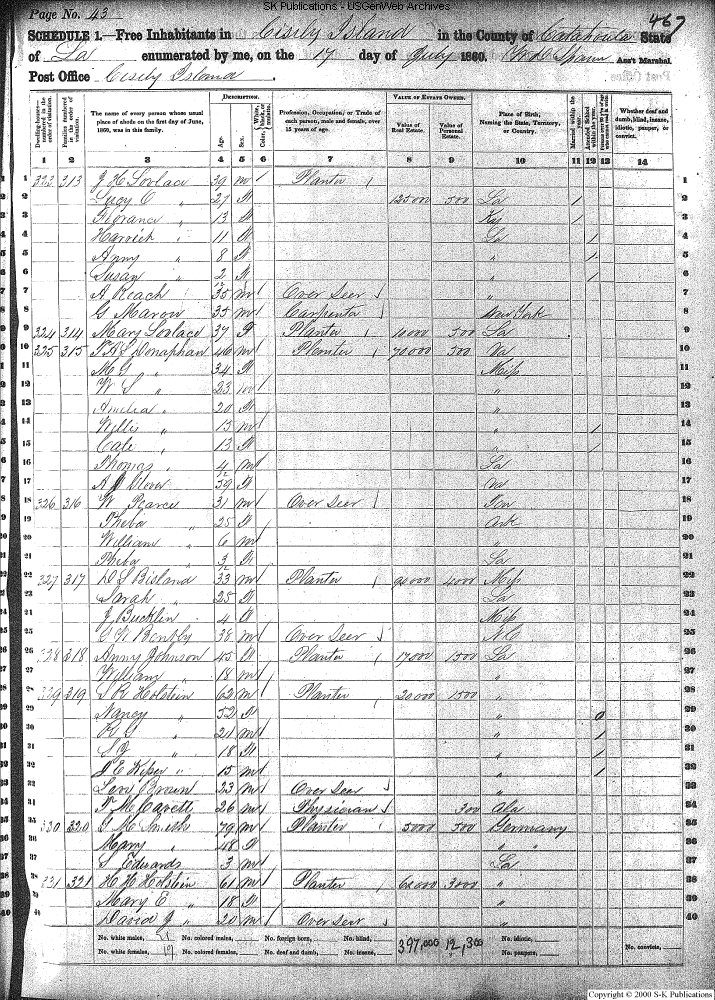 SK Publications - USGenWeb Archives
Page No. 43
467
SCHEDULE 1.—Free Inhabitants in Cisily Island in the County of Catahoula State
of La enumerated by me, on the 17 day of July 1860. Ass't Marshal.
Post Office Cisily Island.
DESCRIPTION. VALUE OF ESTATE OWNED.
Dwelling-houses—numbered in the order of visitation. Families numbered in the order of visitation. The name of every person whose usual place of abode on the first day of June, 1860, was in this family. Age. Sex. Color, White, black, or mulatto. Profession, Occupation, or Trade of each person, male and female, over 15 years of age. Value of Real Estate. Value of Personal Estate. Place of Birth, Naming the State, Territory, or Country. Married within the year. Attended School within the year. Whether deaf and dumb, blind, insane, idiotic, pauper, or convict.
1 2 3 4 5 6 7 8 9 10 11 12 13 14
1 323 313 J H Lovlace 39 m Planter 1
2 Lucy C " 27 f 125000 500 La / 2
3 " 13 f Ky / 3
4 " 11 f La / 4
5 Anny " 8 f " / 5
6 Susan " 2 f " / 6
7 A Roach 35 m Over Seer " 7
8 G Marow 35 m Carpenta New York 8
9 324 314 Mary Lovlace 37 f Planter 10000 500 La 9
10 325 315 Donaphan 46 m Planter 70000 500 Va 10
11 M G " 34 f Miss 11
12 W S " 23 m " 12
13 Amelia " 20 f " 13
14 Willie " 15 m " / 14
15 Cale " 13 f " / 15
16 Thomas " 4 m La 16
17 59 f 17
18 326 316 W Pearce 31 m Over Seer Ten 18
19 Pheba " 25 f Ark 19
20 William " 6 m " 20
21 Pheba " 3/12 f La 21
22 327 317 D S Bisland 33 m Planter 90000 4000 Miss 22
23 Sarah " 25 f La 23
24 J Bucklin 4 Miss 24
25 G W Bently 38 m Over Seer N C 25
26 328 318 Anny Johnson 45 f Planter 17000 1500 La 26
27 William " 18 m " 27
28 329 319 S K Holstein 62 m Planter 20000 1500 " 28
29 Nancy " 52 f " 29
30 " 21 m " / 30
31 S J " 18 f " / 31
32 J E Kiper " 15 m " / 32
33 Levi Brown 23 m Over Seer " 33
34 F M Cavett 26 m Physician 300 Ala 34
35 330 320 G M Smith 79 m Planter 5000 500 Germany 35
36 Mary " 48 f " " 36
37 S Edwards 3 m La 37
38 331 321 H H Holstein 61 m Planter 60000 3000 " 38
39 Mary E " 18 f " 39
40 David J " 20 m Over Seer " 40
No. white males, 21 No. colored males, No. foreign born, No. blind, 397,000 12,300 No. idiotic,
No. white females, 19 No. colored females, No. deaf and dumb, No. insane, No. paupers, No. convicts,
Copyright © 2000 S-K Publications